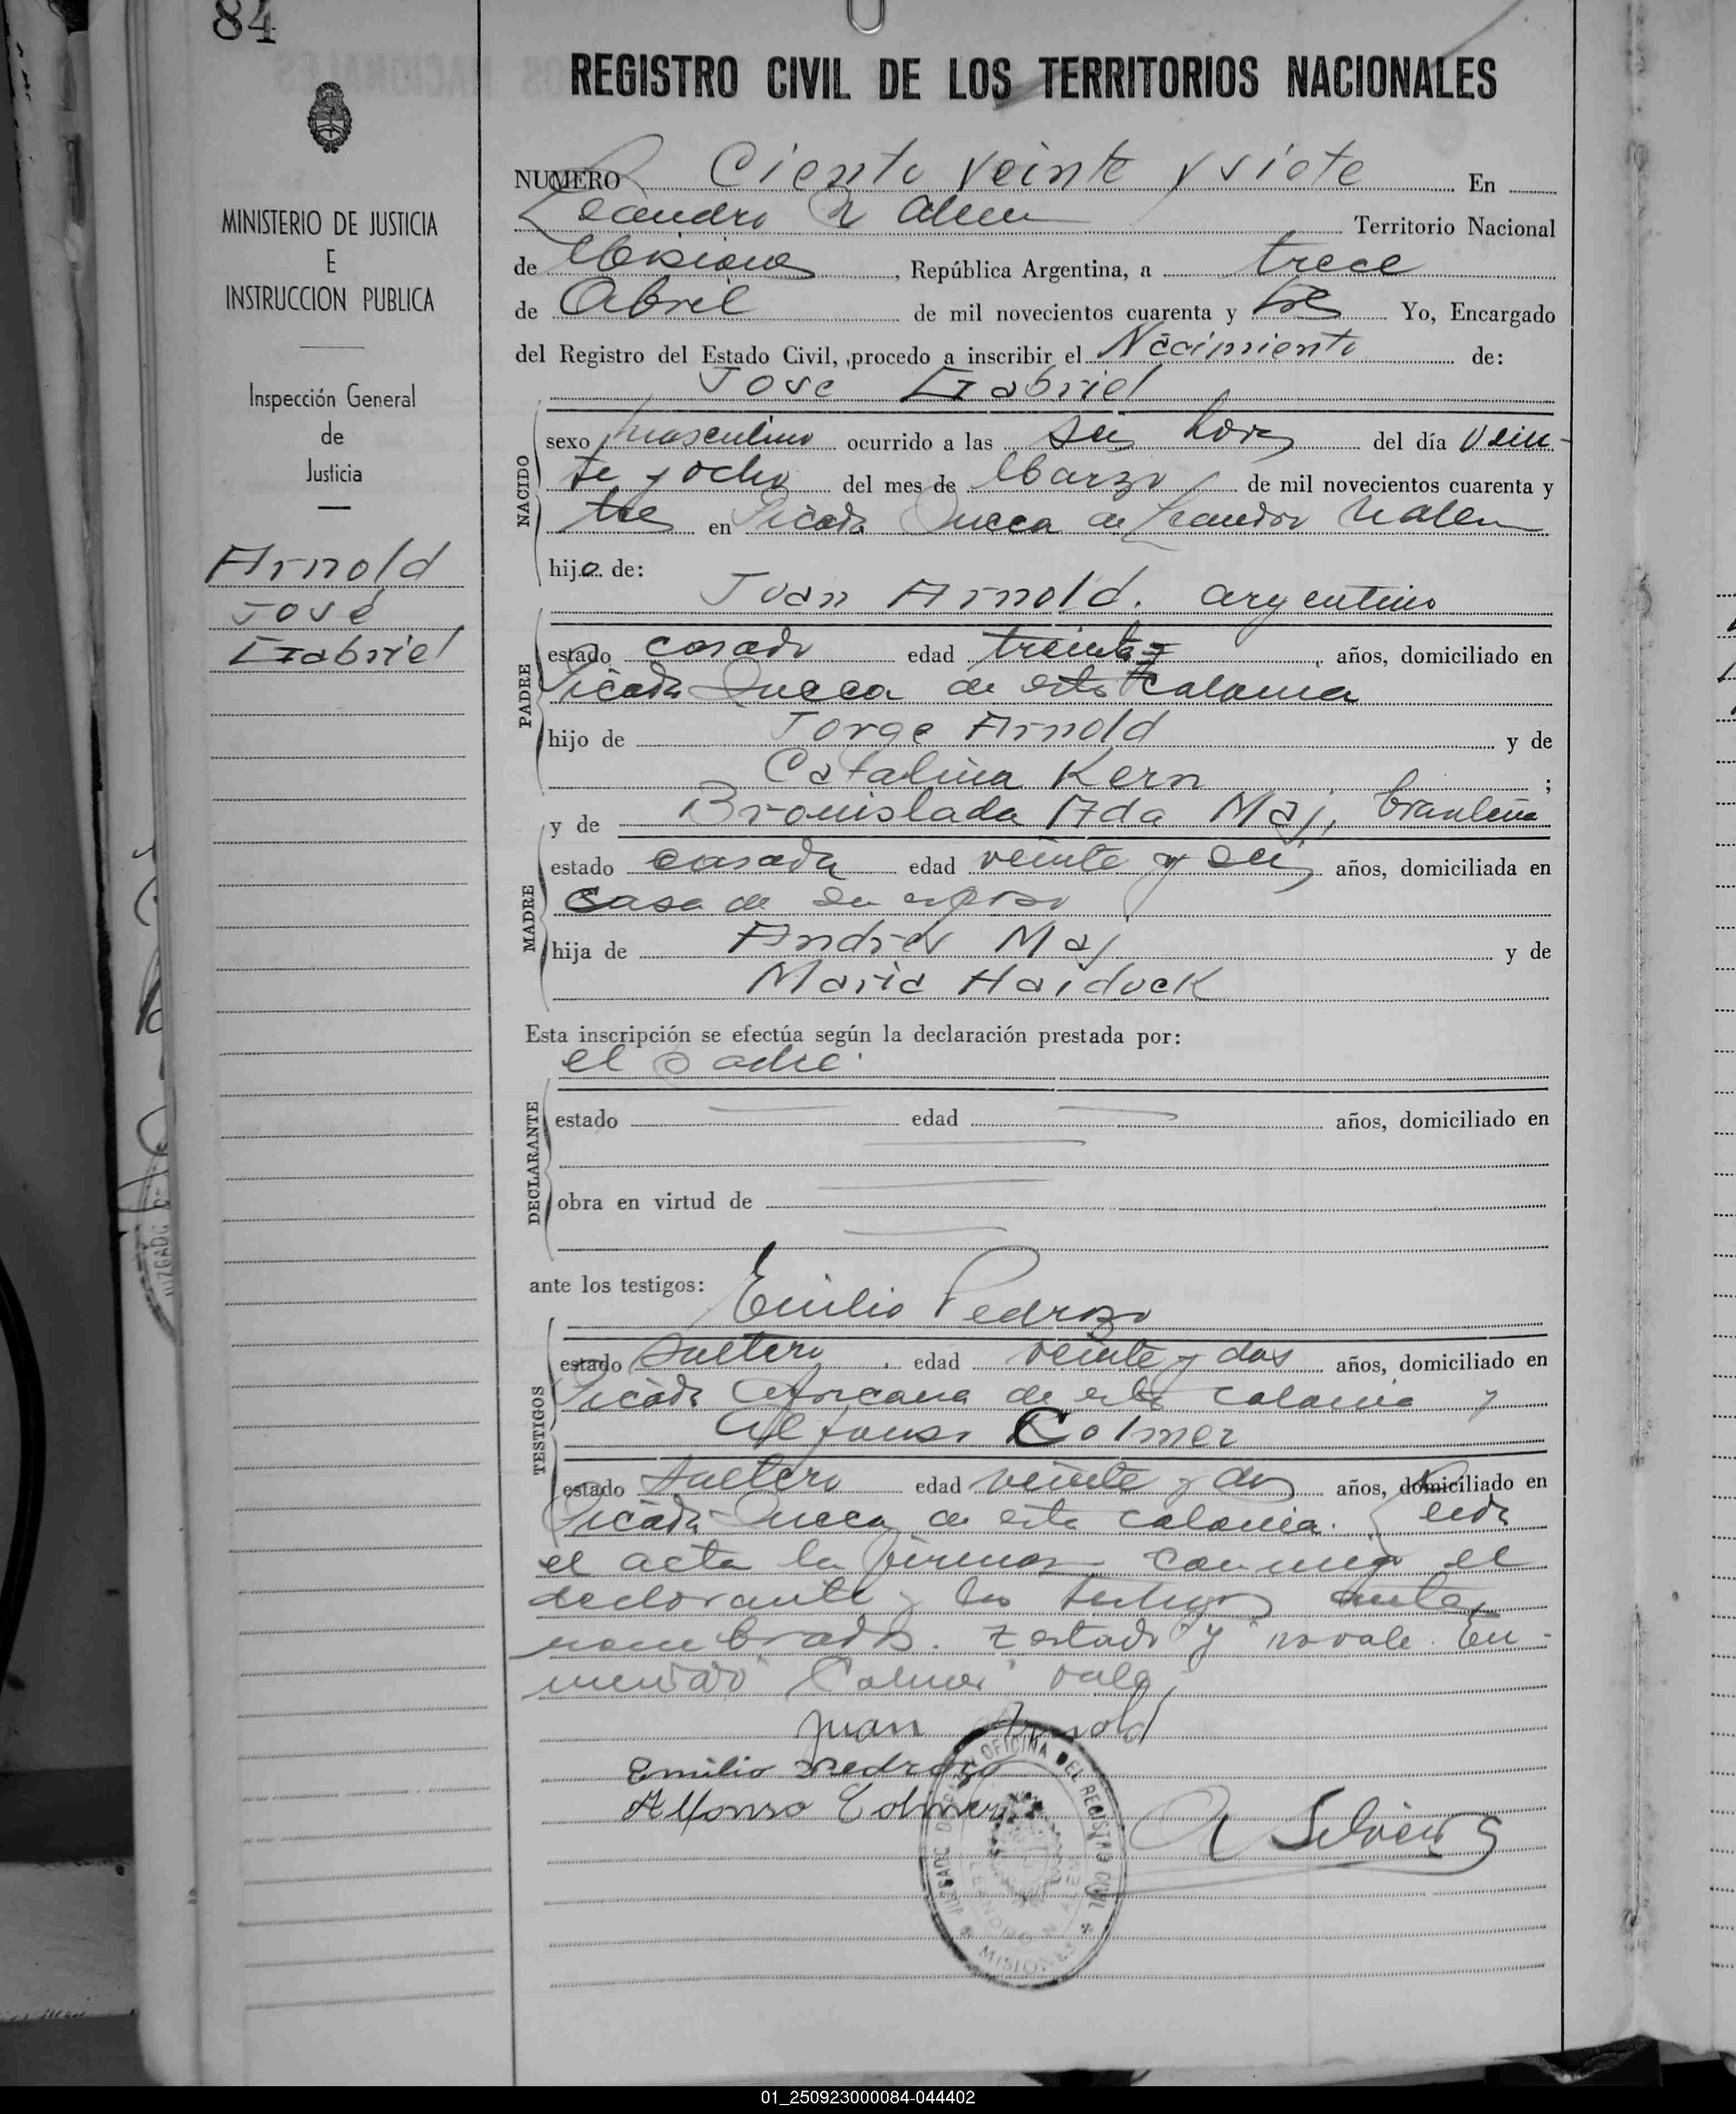 84
REGISTRO CIVIL DE LOS TERRITORIOS NACIONALES
MINISTERIO DE JUSTICIA
E
INSTRUCCION PUBLICA
Inspección General
de
Justicia
Arnold
José
Gabriel
NUMERO Ciento veinte y siete En
Leandro N Alem Territorio Nacional
de Misiones, República Argentina, a trece
de Abril de mil novecientos cuarenta y tres Yo, Encargado
del Registro del Estado Civil, procedo a inscribir el Nacimiento de:
Jose Gabriel
NACIDO
sexo masculino ocurrido a las seis horas del día vein-
te y ocho del mes de Marzo de mil novecientos cuarenta y
tres en Picada Sueca de Leandro N Alem
hijo de:
Juan Arnold. argentino
PADRE
estado casado edad treinta años, domiciliado en
Picada Sueca de esta Colonia
hijo de Jorge Arnold y de
Catalina Kern ;
y de Bronislada Ada Maj, brasileña
MADRE
estado casada edad veinte y seis años, domiciliada en
casa de su esposo
hija de Andres Maj y de
Maria Haiduck
Esta inscripción se efectúa según la declaración prestada por:
el padre
DECLARANTE
estado edad años, domiciliado en
obra en virtud de
ante los testigos:
Emilio Pedrozo
TESTIGOS
estado Soltero edad veinte y dos años, domiciliado en
Picada Africana de esta colonia y
Alfonso Colmer
estado Soltero edad veinte y dos años, domiciliado en
Picada Sueca de esta colonia. Leida
el acta la firman conmigo el
declarante y los testigos antes
nombrados. Testado "y" no vale. En-
mendado "Colmer" vale
Juan Arnold
Emilio Pedrozo
Alfonso Colmer
JUZGADO DE PAZ Y OFICINA DEL REGISTRO CIVIL
LEANDRO N. ALEM
MISIONES
01_250923000084-044402